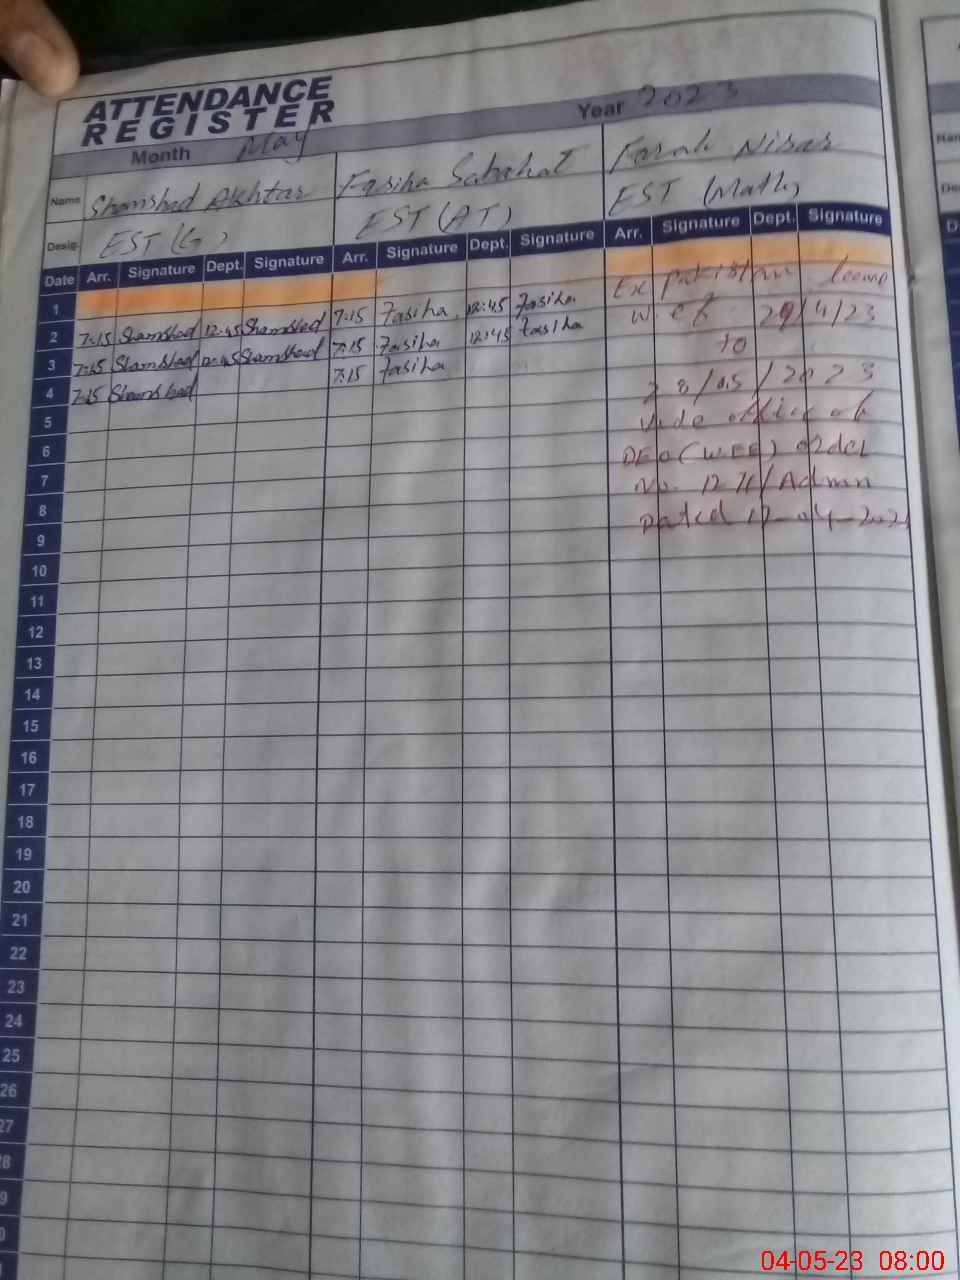 ATTENDANCE
REGISTER
Month May Year 2023
Name Shamshad Akhtar Fasiha Sabahat Farah Nisar
Desig. EST (G) EST (AT) EST (Math)
Date Arr. Signature Dept. Signature Arr. Signature Dept. Signature Arr. Signature Dept. Signature
1 Ex Pakistan leave
2 7:15 Shamshad 12:45 Shamshad 7:15 Fasiha 12:45 Fasiha w.e.f 29/4/23
3 7:15 Shamshad 12:45 Shamshad 7:15 Fasiha 12:45 Fasiha to
4 7:15 Shamshad 7:15 Fasiha 28/05/2023
5 Vide office of
6 DEO (W.EE) order
7 No. 1271/Admn
8 Dated 17-04-2023
9
10
11
12
13
14
15
16
17
18
19
20
21
22
23
24
25
26
27
04-05-23 08:00